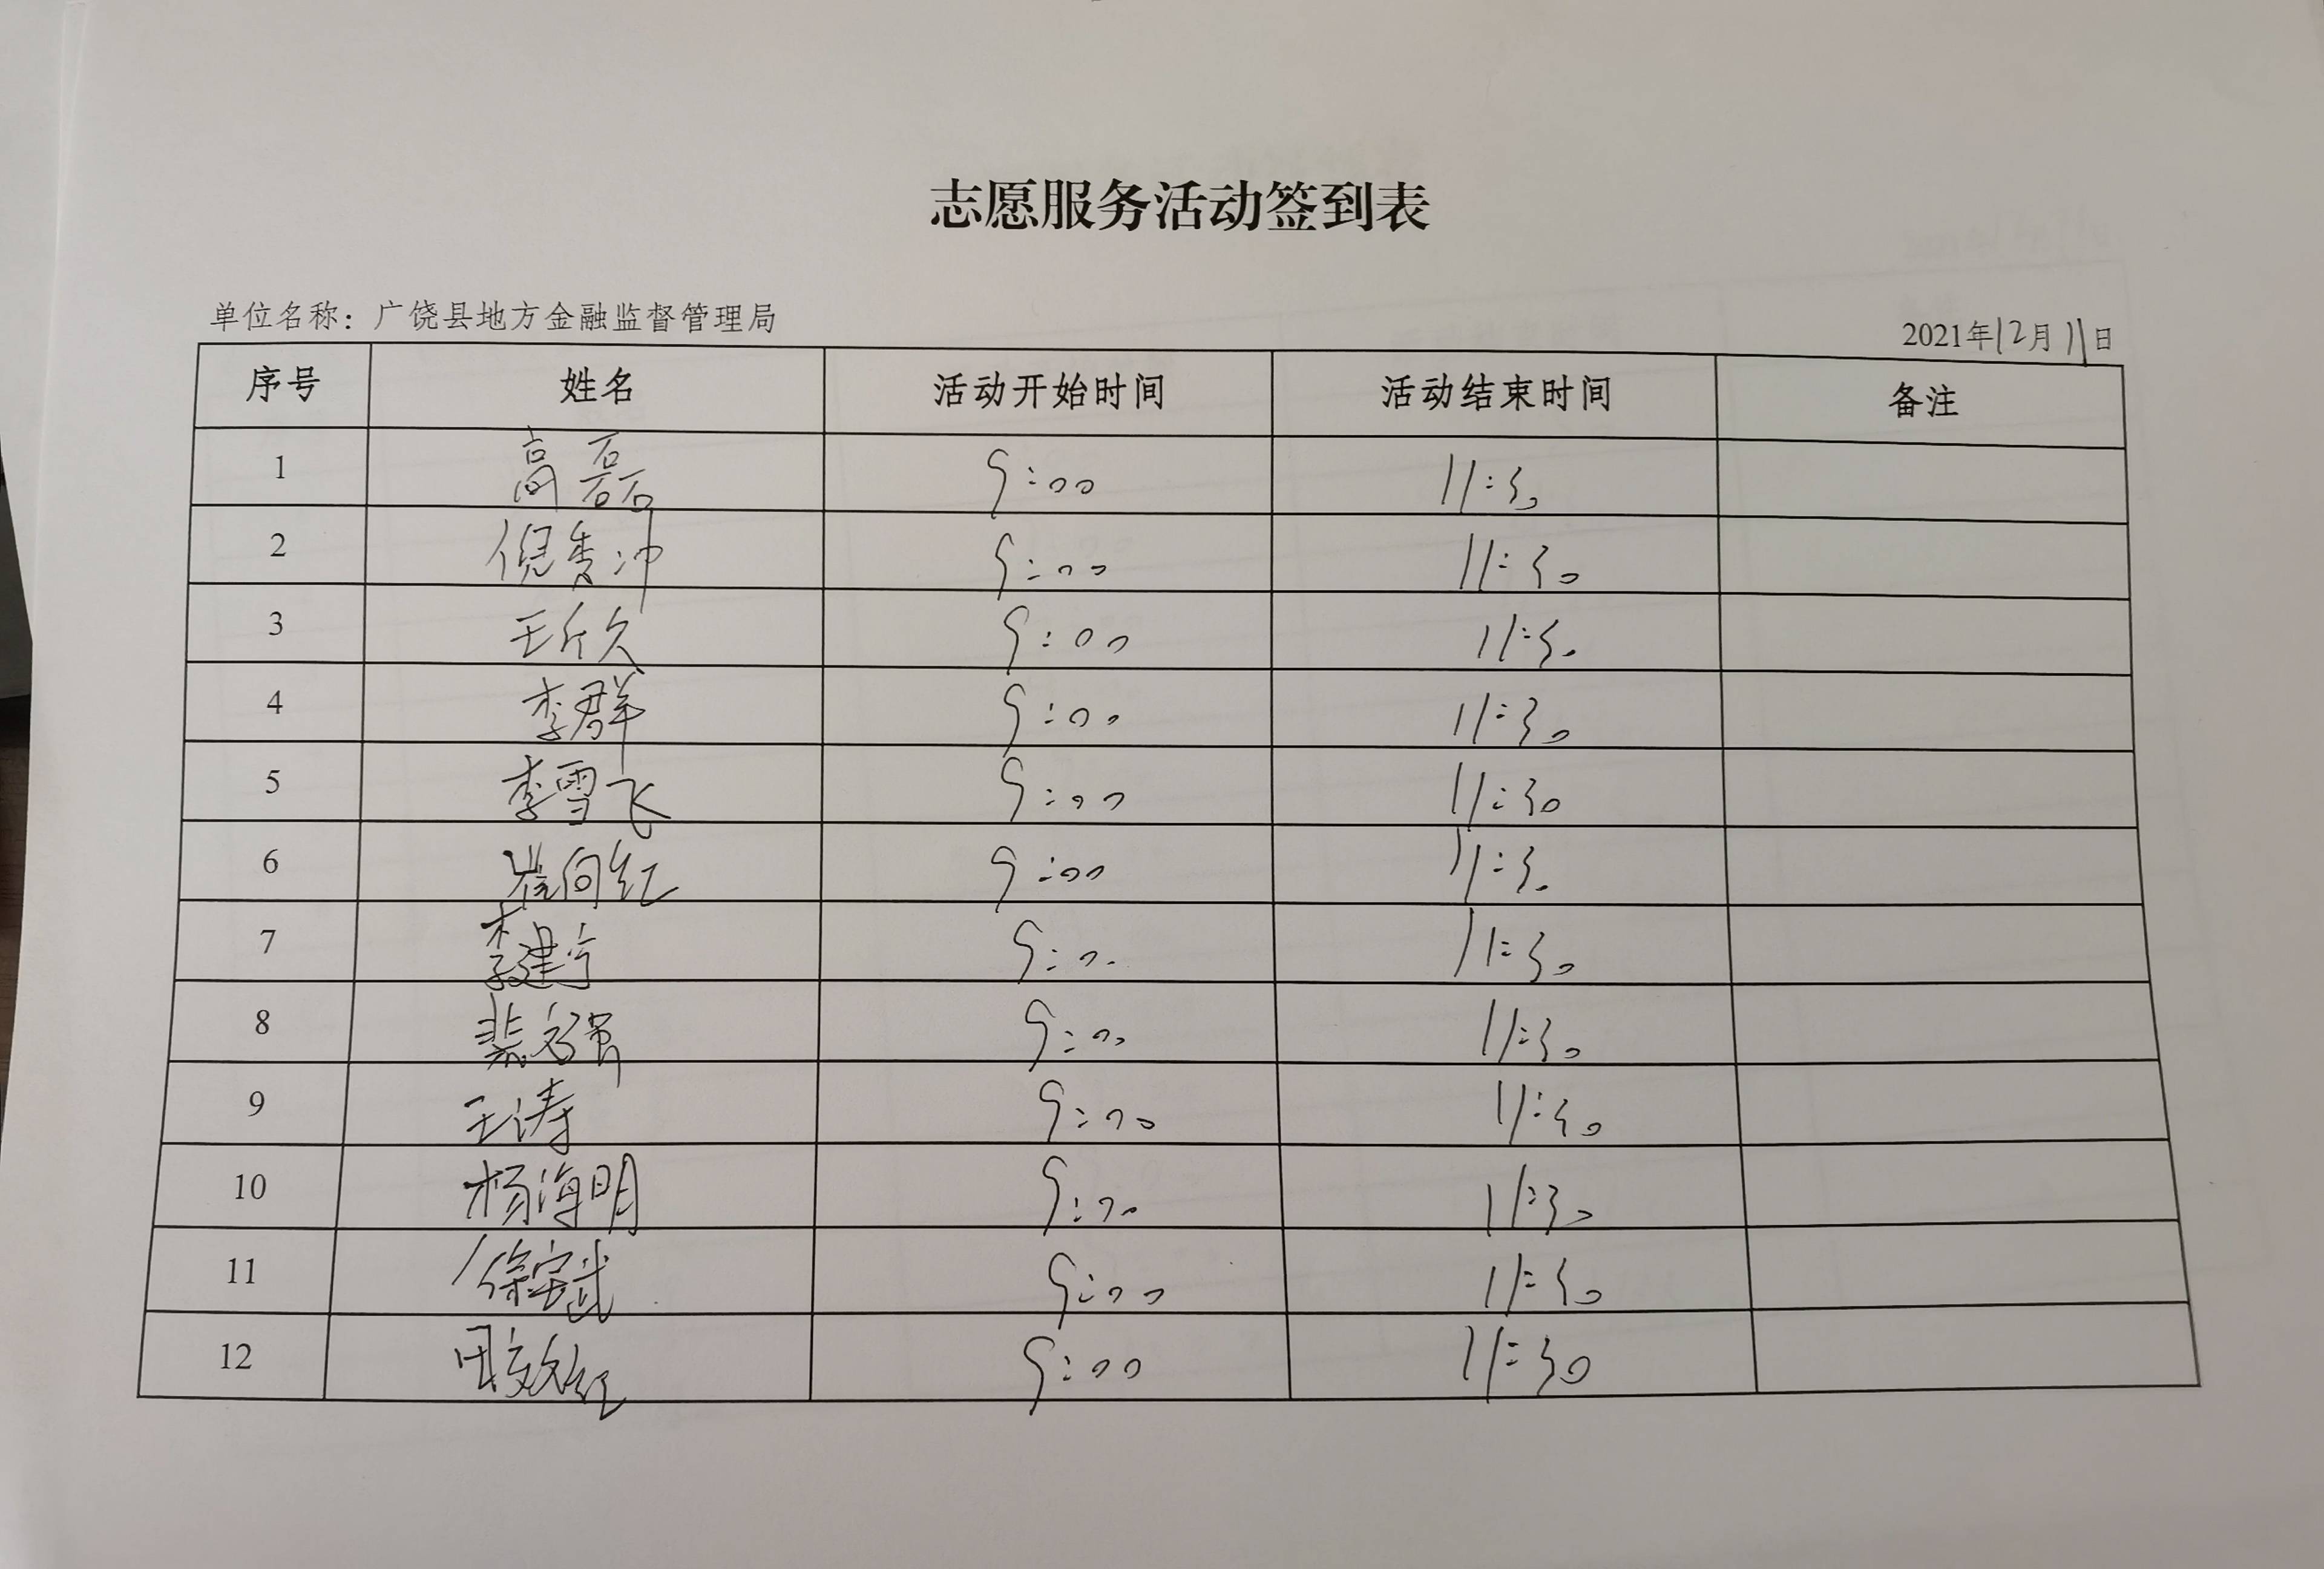 志愿服务活动签到表
单位名称：广饶县地方金融监督管理局
2021年12月11日
序号 姓名 活动开始时间 活动结束时间 备注
1 高磊 9:00 11:30
2 倪秀冲 9:00 11:30
3 王乐久 9:00 11:30
4 李群 9:00 11:30
5 李雪飞 9:00 11:30
6 崔向红 9:00 11:30
7 李建宁 9:00 11:30
8 裴文强 9:00 11:30
9 王涛 9:00 11:30
10 杨海明 9:00 11:30
11 徐宝武 9:00 11:30
12 田效红 9:00 11:30